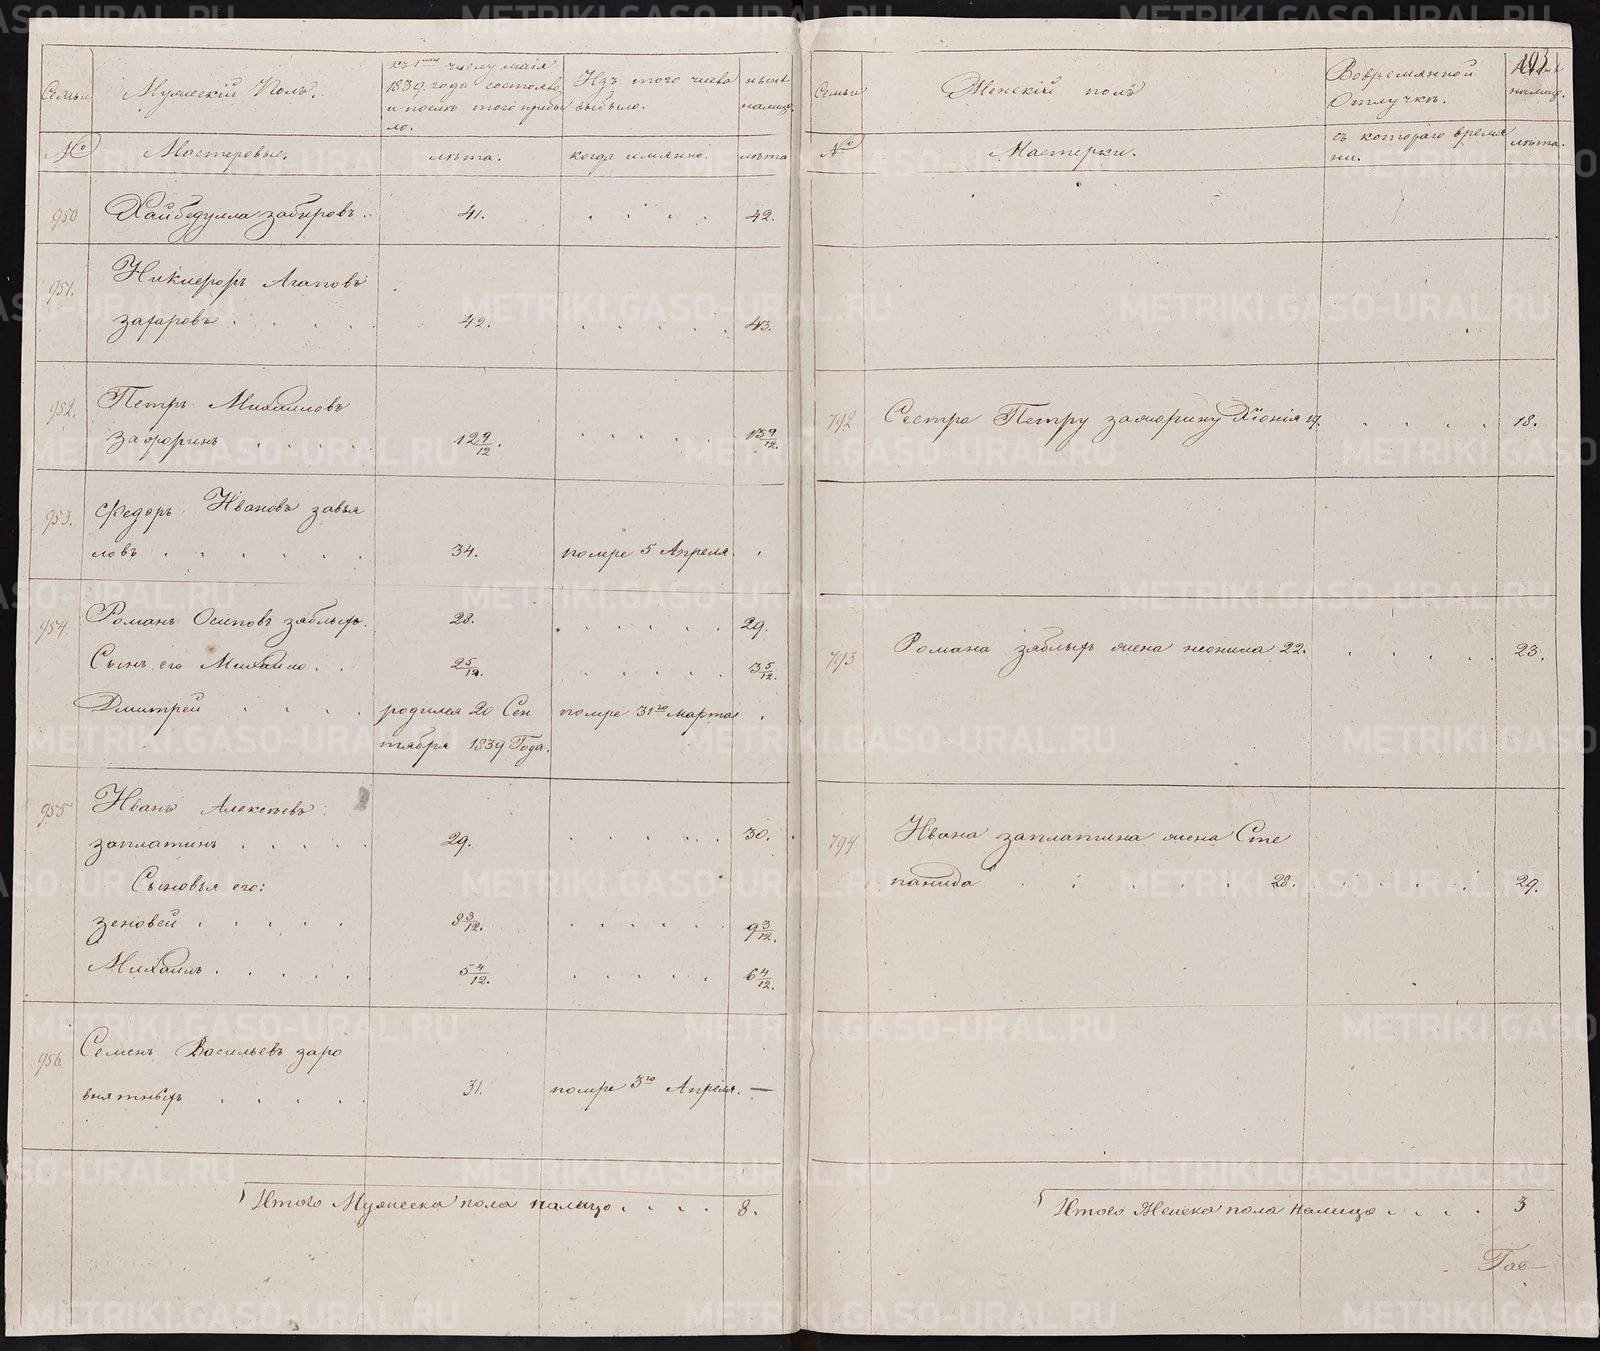 Семьи
Мужескій Полъ.
къ 1му числу маія
1839 года состояло
и послѣ того прибы
ло.
Изъ того числа
выбыло.
нынѣ
налицо.
№
Мастеровые.
лѣта.
когда имянно.
лѣта
950 Хайбедулла забировъ. 41. 42.
951. Никифоръ Агаповъ
захаровъ 42. 43.
952. Петръ Михаиловъ
зафоринъ 12 9/12. 13 9/12.
953. Федоръ Ивановъ завья
ловъ 34. помре 5 Апреля.
954. Романъ Осиповъ зяблыхъ. 28. 29.
Сынъ его Михаило 2 5/12. 3 5/12.
Дмитрей родился 20 Сен помре 31го марта
тября 1839 Года.
955 Иванъ Алексѣевъ
заплатинъ 29. 30.
Сыновья его:
зеновей 8 3/12. 9 3/12.
Михаилъ 5 4/12. 6 4/12.
956. Семенъ Васильевъ заро
внятныхъ 31. помре 3го Апреля. —
Итого Мужеска пола налицо 8.
193
Семьи
Женскій полъ
Вовремянной
Отлучкѣ.
налицо.
№
Мастерки.
съ котораго време
ни.
лѣта.
792 Сестра Петру зафорину Хіонія 17. 18.
793 Романа зяблыхъ жена неонила 22. 23.
794 Ивана заплатина жена Сте
панида 28. 29.
Итого Женска пола налицо 3
Гав—
METRIKI.GASO-URAL.RU